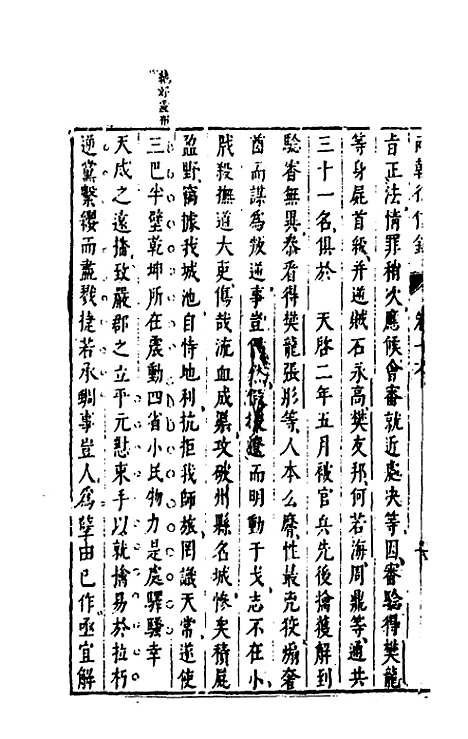 兩朝從信錄 卷十六
旨正法情罪稍次應候會審就近處決等因審驗得樊龍
等身屍首級并逆賊石永高樊友邦何若海周鼎等通共
三十一名俱於 天啓二年五月被官兵先後擒獲解到
驗審無異叅看得樊龍張彤等人本么麽性最兇狡煽奢
酋而謀為叛逆事豈偶然假援遼而明動干戈志不在小
戕殺撫道大吏傷哉流血成渠攻破州縣名城慘矣積屍
盈野竊據我城池自恃地利抗拒我師旅罔識天常遂使
三巴半壁乾坤所在震動四省小民物力是處驛騷幸
天威之遠播致嚴郡之立平元憝束手以就擒易於拉朽
逆黨繫纓而盡戮捷若承蜩事豈人為孽由已作亟宜解